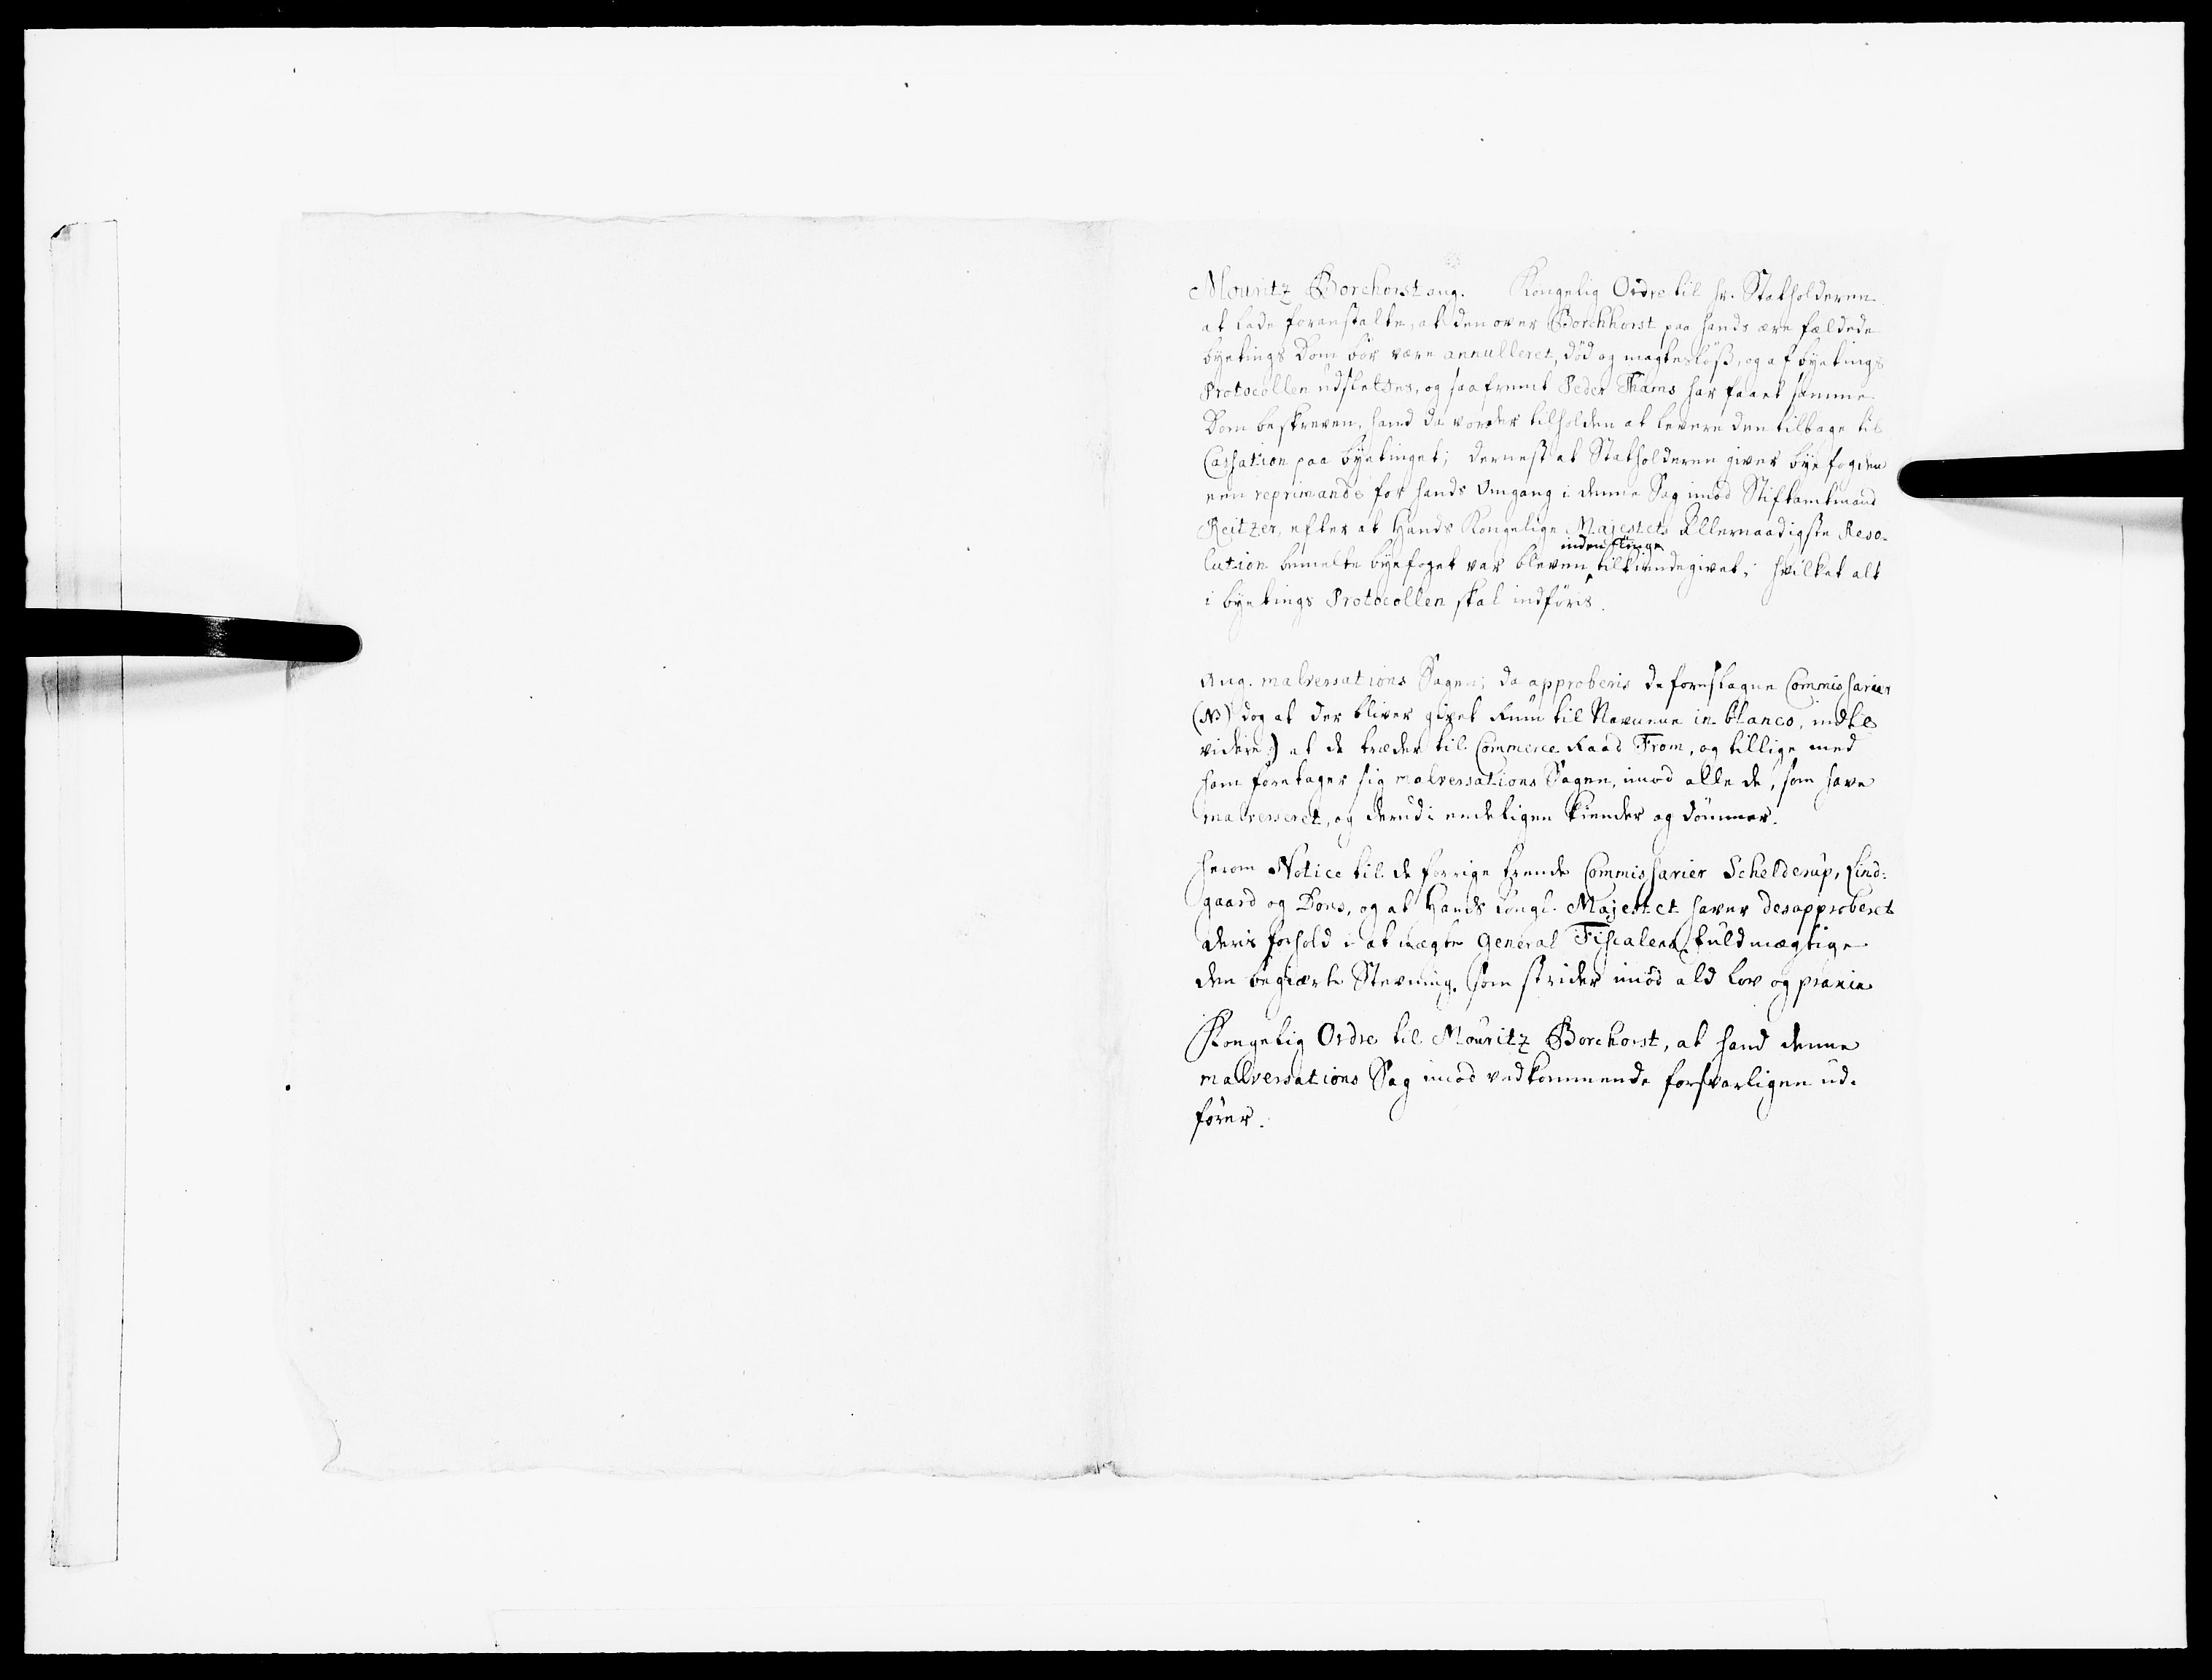 Mouritz Borchorst ang. Kongelig Ordre til hr. Statholderen
at lade foranstalte, at den over Borchhorst paa hands ære fældede
byetings Dom bör være annulleret, död og magteslöß, og af byetings
Protocollen udslettes, og saafremt Peder Thams har faaet samme
Dom beskreven, hand da vorder tilholden at levere den tilbage til
Cassation paa byetinget; dernest at Statholderen giver byefogden
een reprimande for hands Omgang i denne Sag imod Stiftamtmand
Reitzer, efter at Hands Kongelige Majestets Allernaadigste Reso-
lution bemelte byefoget var bleven inden tinge tilkiendegivet; hvilket alt
i byetings Protocollen skal indföris.
Ang. malversations Sagen; da approberis de foreslagne Commissarier
(NB) dog at der bliver givet Rum til Navnene in blanco, indtil
videre) at de træder til Commerce Raad From, og tillige med
ham foretager sig malversations Sagen, imod alle de, som have
malverseret, og derudi endeligen kiender og dömmer.
herom Notice til de forrige trende Commissarier Schelderup, Lind-
gaard og Dons, og at Hands Kongl. Majestet haver desapproberet
deris forhold i at nægte General Fiscalens fuldmægtige
den begiærte Stevning, som strider imod ald lov og praxin
Kongelig Ordre til Mouritz Borchorst, at hand denne
malversations Sag imod vedkommende forsvarligen ud-
förer.